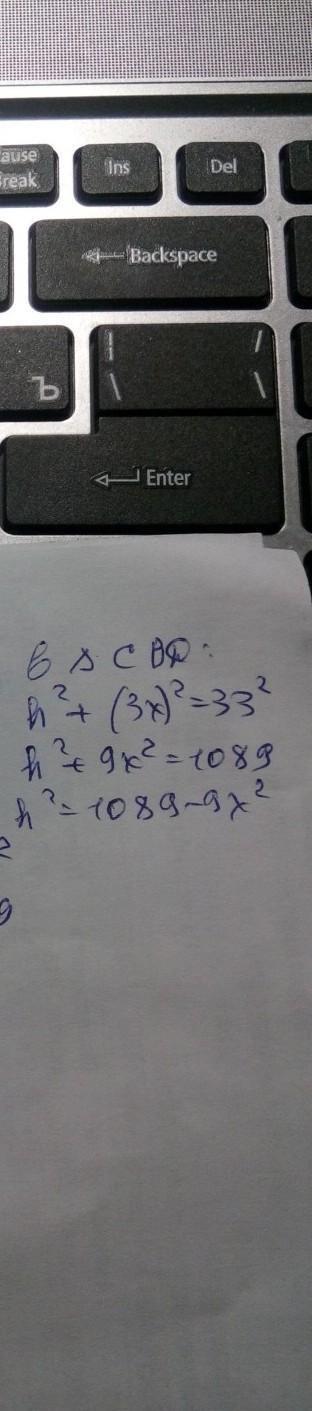 ause
Break
Ins
Del
Backspace
| /
Ъ \ \
Enter
в Δ CBD:
h²+ (3x)²=33²
h²+ 9x²=1089
h²=1089-9x²
9